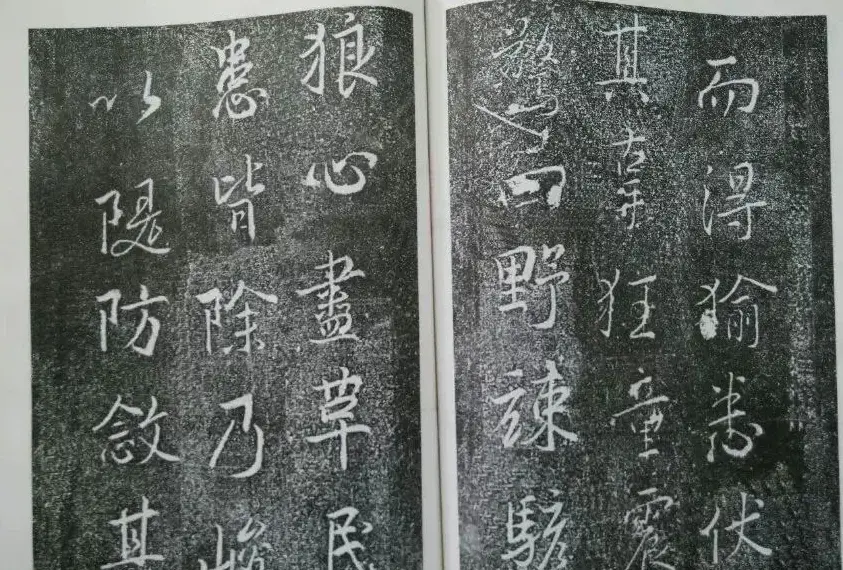 而得猾悉伏
其辜狂童震
驚四野竦駭
狼心盡革民
患皆除乃峻
以隄防斂其